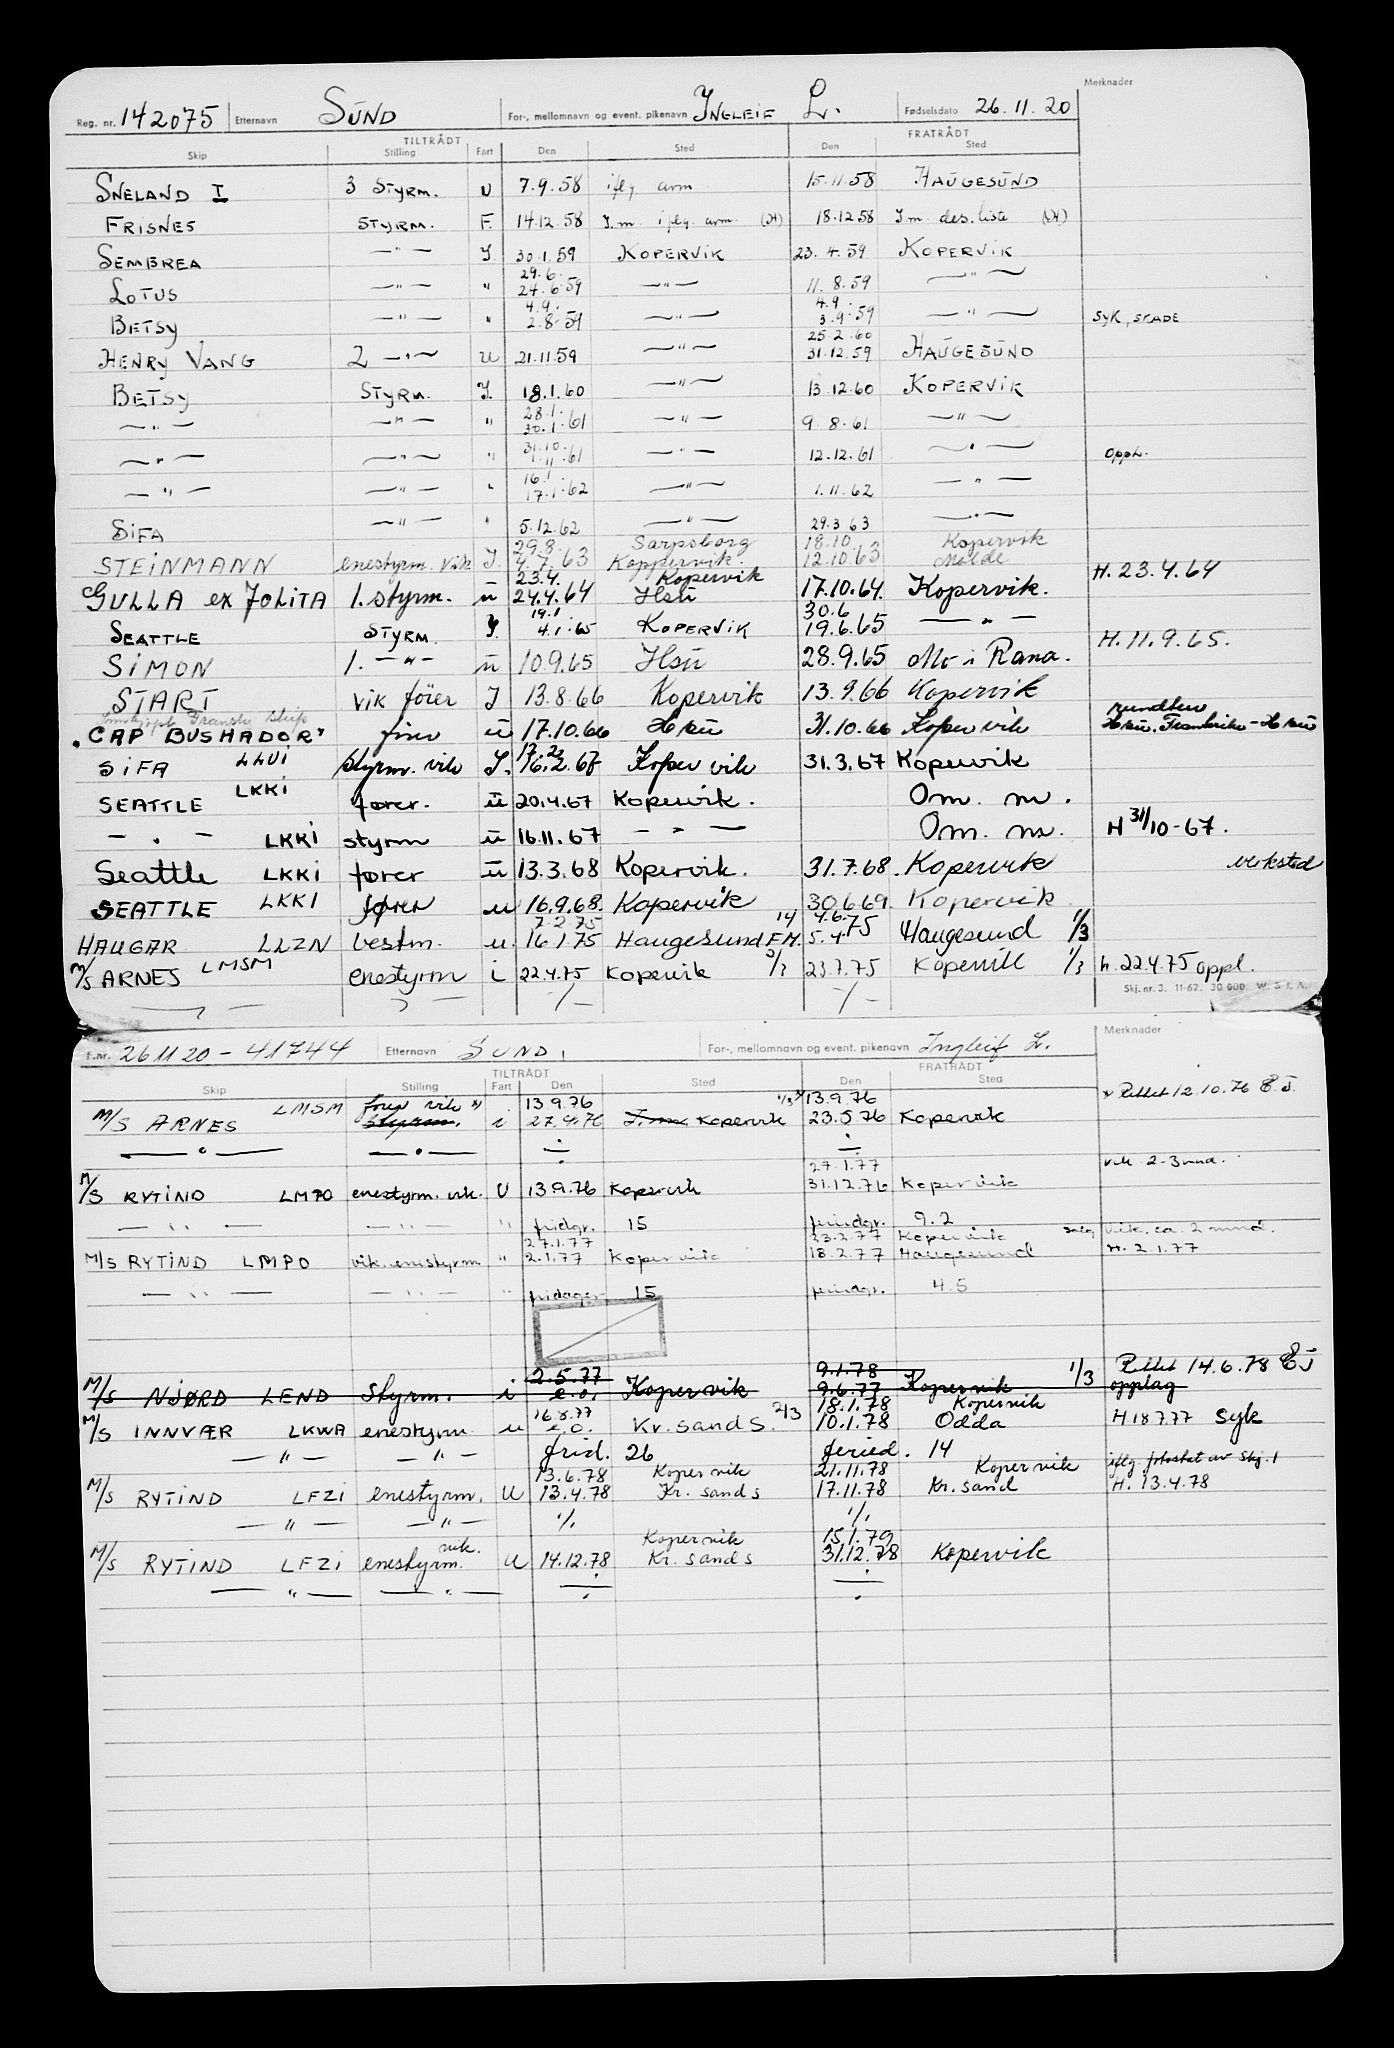 Merknader
Reg. nr. 142075 Etternavn SUND For-, mellomnavn og event. pikenavn INGLEIF L. Fødselsdato 26.11.20
TILTRÅDT FRATRÅDT
Skip Stilling Fart Den Sted Den Sted
SNELAND I 3 STYRM. U 7.9.58 iflg. avm. 15.11.58 HAUGESUND
FRISNES STYRM. F. 14.12.58 J.m. iflg. avm. (St) 18.12.58 J.m. des. liste (St)
SEMBREA — " — J. 30.1.59 KOPERVIK 23.4.59 KOPERVIK
29.6.
LOTUS — " — " 24.6.59 — " — 11.8.59 — " —
4.9. 4.9.
BETSY — " — " 2.8.59 — " — 3.9.59 — " — SYK, SKADE
25.2.60
HENRY VANG 2 — " — U 21.11.59 — " — 31.12.59 HAUGESUND
BETSY STYRM. J. 18.1.60 — " — 13.12.60 KOPERVIK
28.1.
— " — — " — " 30.1.61 — " — 9.8.61 — " —
31.10.
— " — — " — " 1.11.61 — " — 12.12.61 — " — Oppl.
16.1.
— " — — " — " 17.1.62 — " — 1.11.62 — " —
SIFA — " — " 5.12.62 — " — 29.3.63 — " —
29.8. Sarpsborg 18.10 Kopervik
STEINMANN enestyrm. vik J. 4.7.63 Koppervik. 12.10.63 Molde
23.4. Kopervik
GULLA ex JOLITA 1. styrm. u 24.4.64 Hsu 17.10.64. Kopervik. H. 23.4.64
19.1 30.6
SEATTLE STYRM. J. 4.1.65 KOPERVIK 19.6.65 — " —
SIMON 1. — " — u 10.9.65 Hsu 28.9.65 Mo i Rana. H. 11.9.65.
START vik fører J 13.8.66 Kopervik 13.9.66 Kopervik
Innkjøpt Fransk skip
"CAP BUSHADOR" fører u 17.10.66 Hsu 31.10.66 Kopervik
17.2.
SIFA LLUI styrm. vik J. 16.2.67 Kopervik 31.3.67 Kopervik
SEATTLE LKKI fører. u 20.4.67 Kopervik. Om. m.
— " — LKKI styrm u 16.11.67 — " — Om. m. H 31/10-67.
Seattle LKKI fører u 13.3.68 Kopervik. 31.7.68. Kopervik verksted
SEATTLE LKKI fører u 16.9.68. Kopervik 30.6.69. Kopervik
7.2.75 14 4.6.75
HAUGAR LLZN bestm. u. 16.1.75 Haugesund F.H. 5.4 Haugesund 1/3
M/S ARNES LMSM enestyrm i 22.4.75 Kopervik 2/3 23.7.75 Kopervik 1/3 h. 22.4.75 oppl.
Skj. nr. 3. 11-62. 30 000. W. S. I. A.
— " — — " — -/- -/-
Merknader
F.nr. 261120-41744 Etternavn SUND, For-, mellomnavn og event. pikenavn Ingleif L.
TILTRÅDT FRATRÅDT
Skip Stilling Fart Den Sted Den Sted
fører vik x) 13.9.76 13.9.76 x Rettet 12.10.76 E.J.
M/S ARNES LMSM styrm. i 27.4.76 J.m. Kopervik 23.5.76 Kopervik
— " — — " — ÷ ÷
27.1.77 vik 2-3 mnd.
M/S RYTIND LMPO enestyrm. vik. U 13.9.76 Kopervik 31.12.76 Kopervik
— " — — " — " fridgr. 15 feriedgr. 9.2
27.1.77 23.2.77 Kopervik vik. ca. 2 mnd.
M/S RYTIND LMPO vik. enestyrm. " 2.1.77 Kopervik 18.2.77 Haugesund H. 2.1.77
— " — — " — " fridager 15 feriedgr. 4.5
2.5.77 9.1.78 1/3 Rettet 14.6.78 EJ
M/S NJØRD LEND styrm. i e.o. Kopervik 9.6.77 Kopervik opplag
16.8.77 2/3 18.1.78 Kopervik
M/S INNVÆR LKWA enestyrm u e.o. Kr.sands. 10.1.78 Odda H.18.7.77 Syk
— " — — " — frid. 26 feried. 14
13.6.78 Kopervik 21.11.78 Kopervik
M/S RYTIND LFZI enestyrm. U 13.4.78 Kr.sands 17.11.78 Kr.sand H. 13.4.78
— " — — " — ·/· ·/·
vik. Kopervik 15.1.79
M/S RYTIND LFZI enestyrm. U 14.12.78 Kr.sands 31.12.78 Kopervik
— " — — " — ÷ ÷